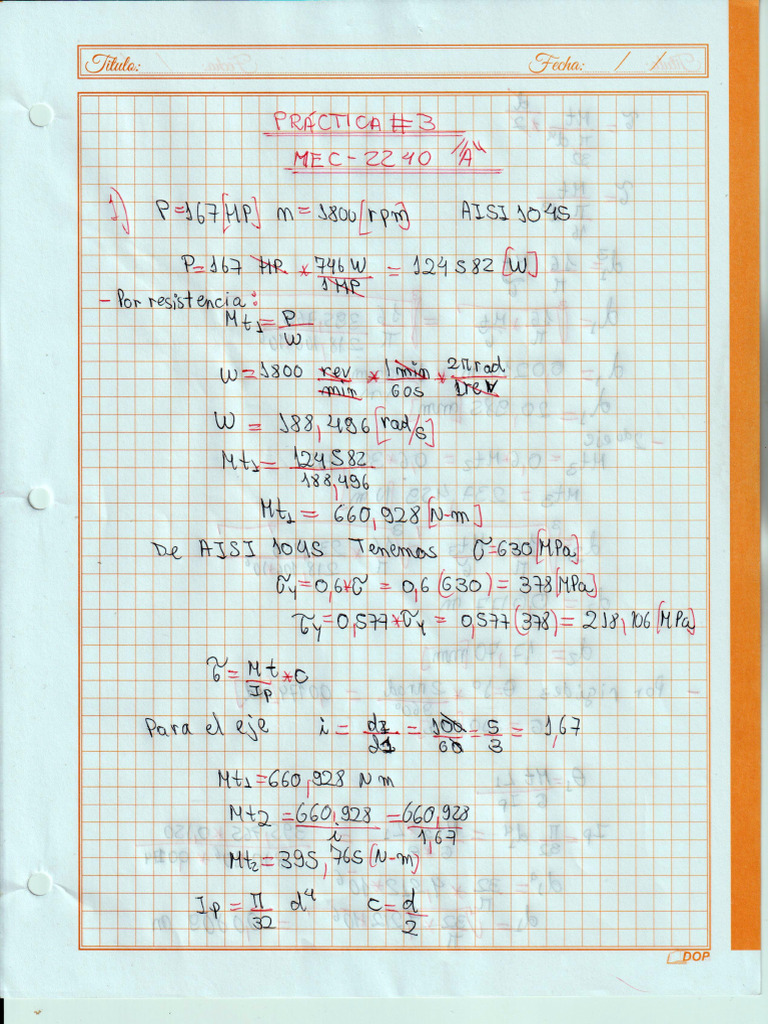 Título:
Fecha: / /
PRÁCTICA #3
MEC-2240 "A"
1) P=167[HP] n=1800[rpm] AISI 1045
P=167 HP * 746W/1HP = 124582 [W]
- Por resistencia:
Mt1 = P/W
W=1800 rev/min * 1min/60s * 2πrad/1rev
W = 188,496[rad/s]
Mt1 = 124582/188,496
Mt1 = 660,928[N-m]
De AISI 1045 Tenemos σ=630[MPa]
σy=0,6*σ = 0,6(630)=378[MPa]
τy=0,577*σy = 0,577(378)=218,106[MPa]
τ=Mt/Ip*c
Para el eje i = d2/d1 = 100/60 = 5/3 = 1,67
Mt1=660,928 Nm
Mt2 = 660,928/i = 660,928/1,67
Mt2=395,765[N-m]
Ip = π/32 d⁴ c=d/2
DOP